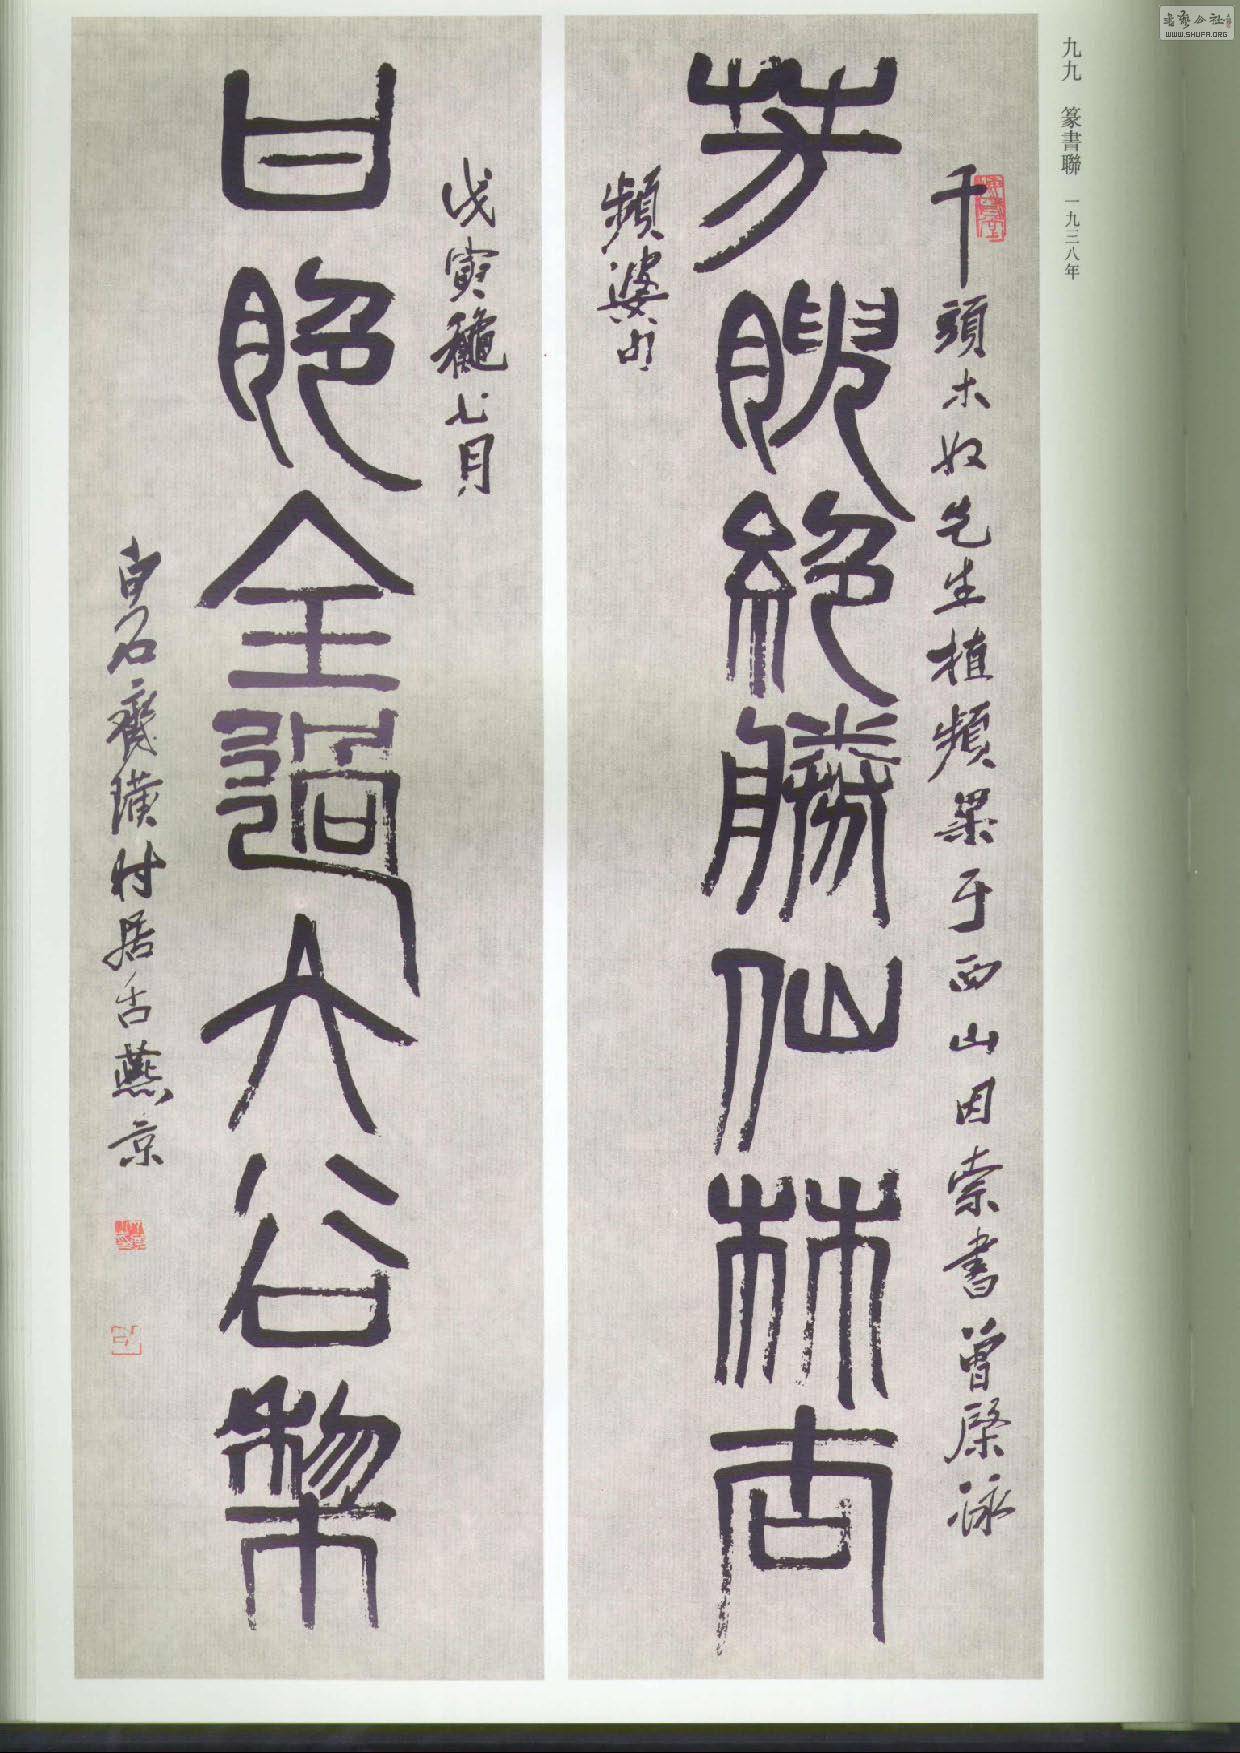 九九 篆書聯 一九三八年
千頭木奴先生植頻果于西山因索書曾棨泳
芳腴絕勝仙林杏
頻婆句
戊寅龝七月
甘脃全過大谷棃
白石齊璜时居燕京
WWW.SHUFA.ORG